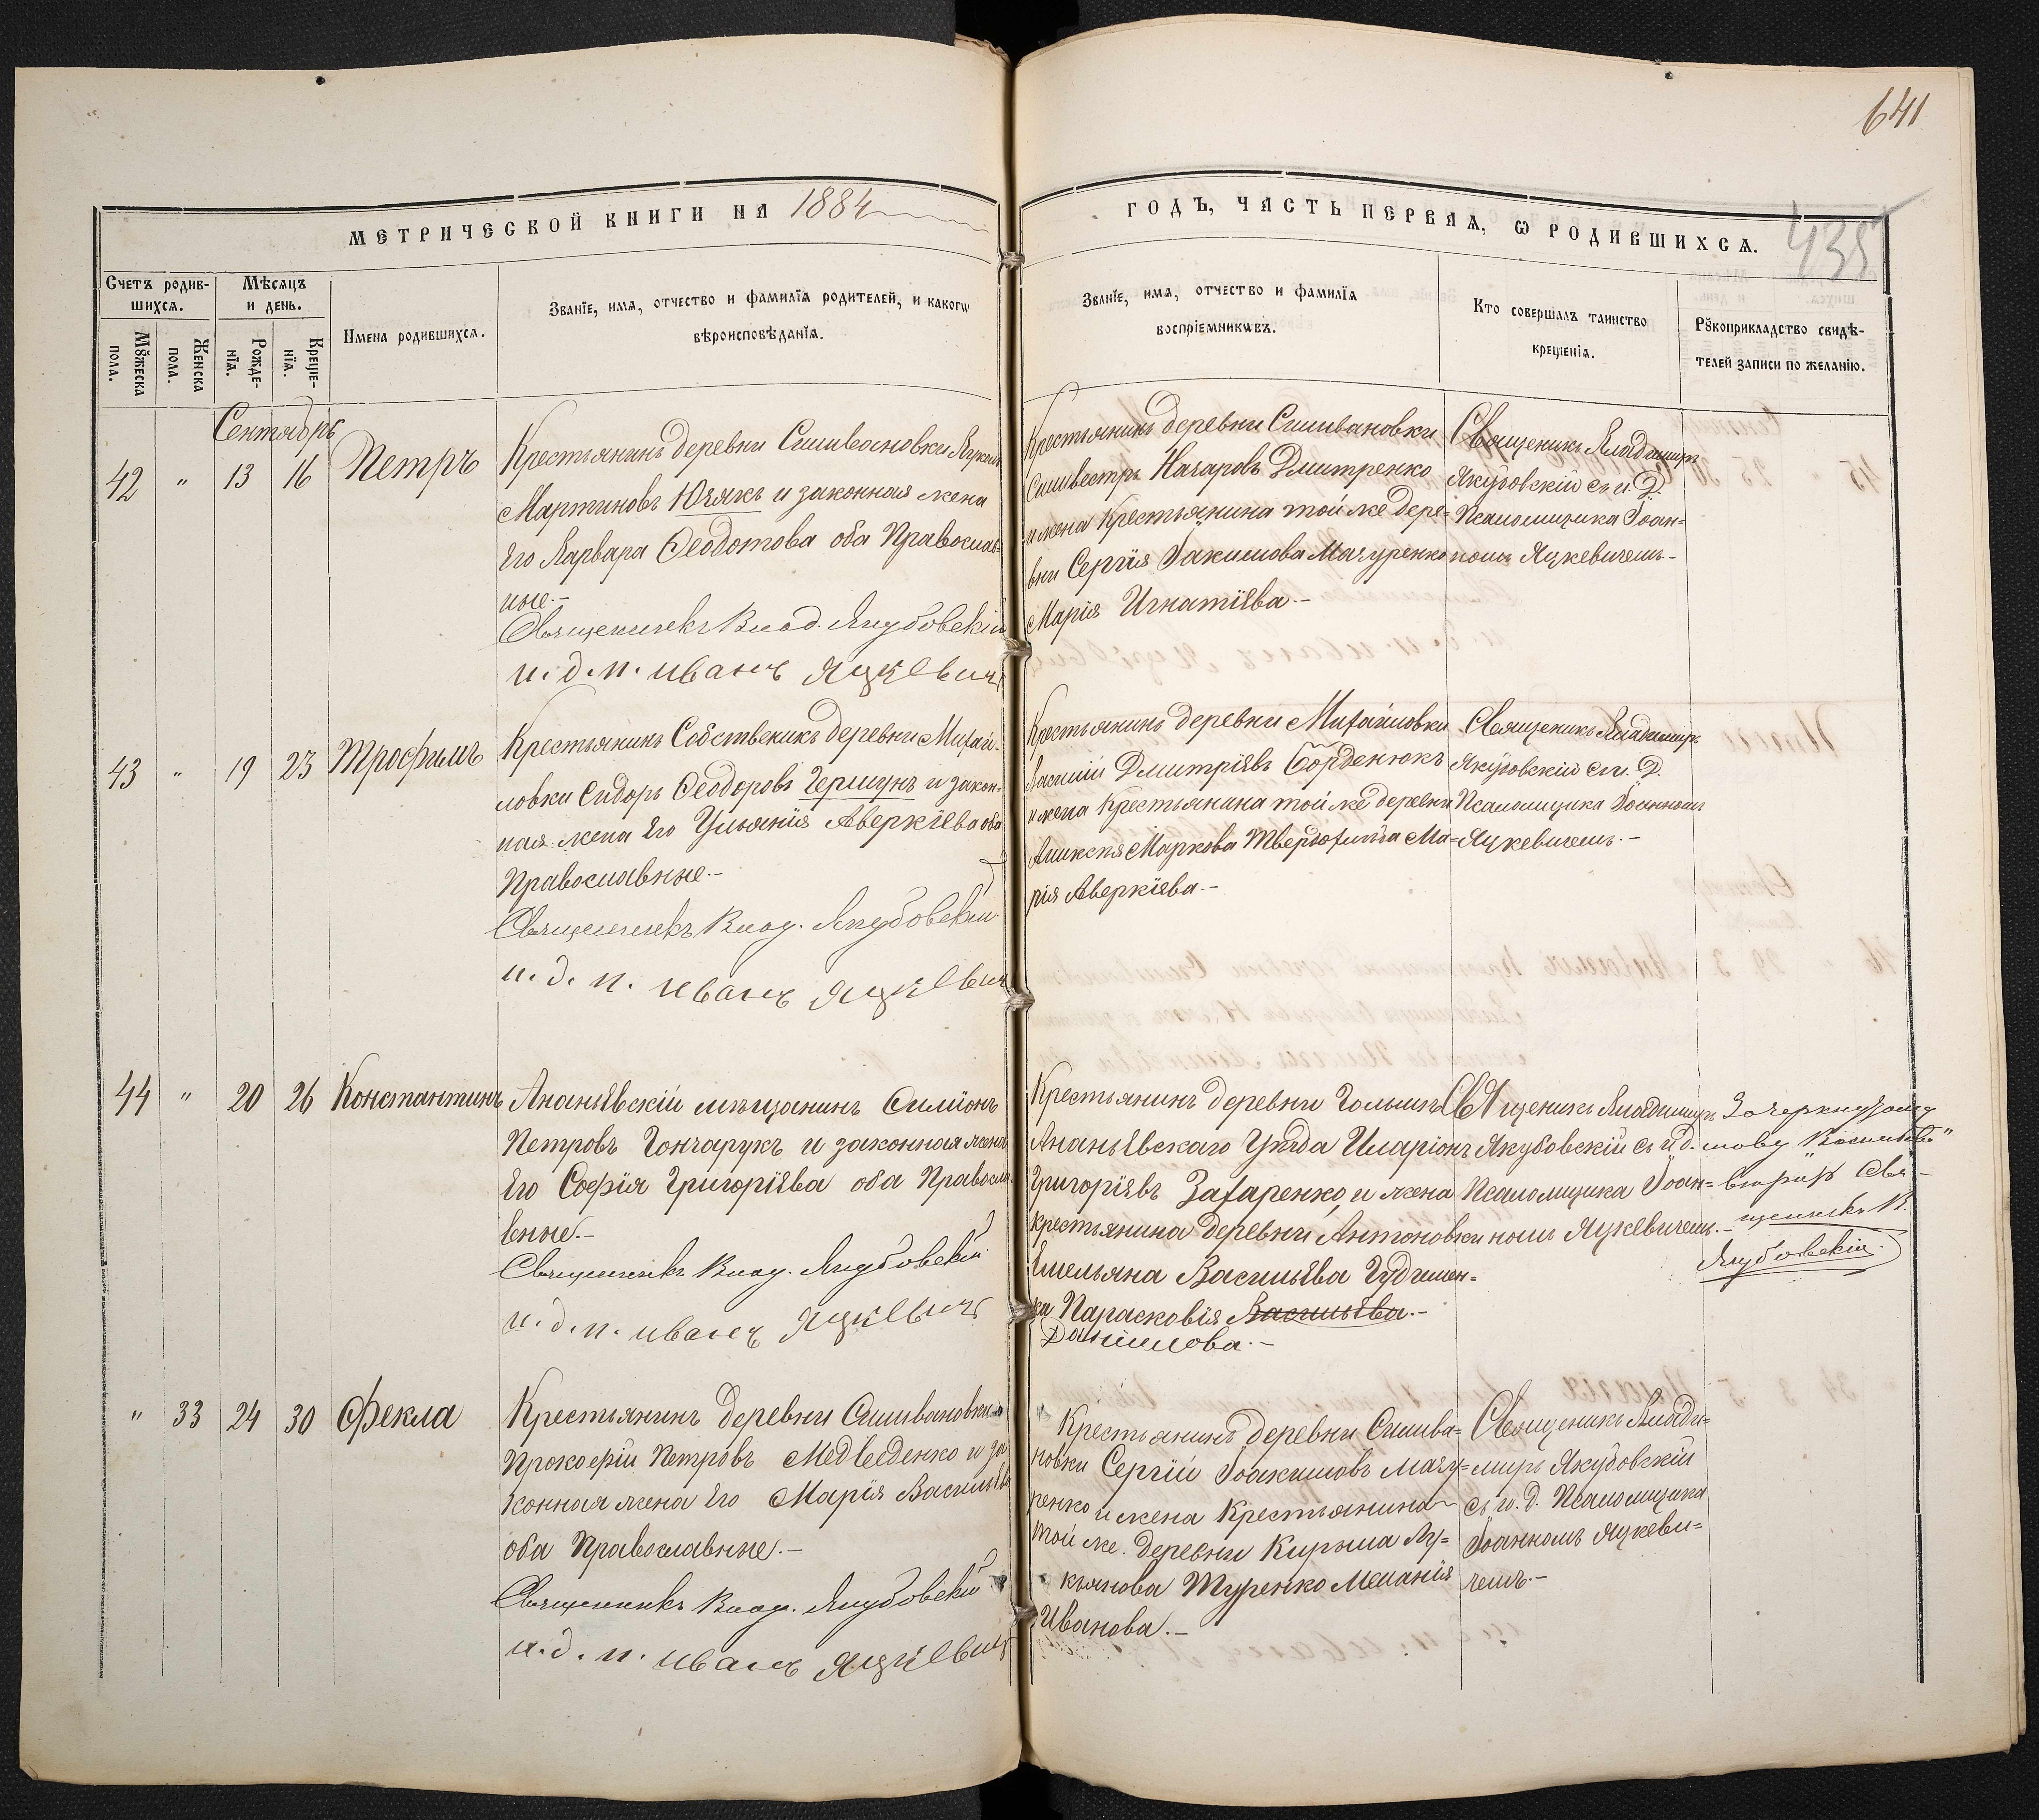 641
435
МЕТРИЧЕСКОЙ КНИГИ НА 1884
ГОДЪ, ЧАСТЬ ПЕРВАЯ, Ѡ РОДИВШИХСЯ.
Счетъ родив-
шихся.
Мѣсяцъ
и день.
Мꙋжеска
пола.
Женска
пола.
Рожде-
нїя.
Креще-
нїя.
Имена родившихся.
Званїе, имя, отчество и фамилїя родителей, и какогѡ
вѣроисповѣданїя.
Званїе, имя, отчество и фамилїя
воспрїемникѡвъ.
Кто совершалъ таинство
крещенїя.
Рꙋкоприкладство свидѣ-
телей записи по желанїю.
Сентябрь
42 " 13 16 Петръ
Крестьянинъ деревни Силивановки
Мартиновъ Юзякъ и законная жена
Его Варвара Ѳеодотова оба Православ-
ные.-
Священникъ Влад. Якубовскій
и. д. п. Иванъ Яцкевичъ
Крестьянинъ деревни Силивановки
Силивестръ Назаровъ Дмитренко
и жена Крестьянина той же дере=
вни Сергія Іакимова Мазуренко
Марія Игнатіева.-
Священикъ Владимиръ
Якубовскій съ и. Д.
Псаломщика Іоан=
номъ Яцкевичемъ-
43 " 19 23 Трофимъ
Крестьянинъ Собственикъ деревни Михай-
ловки Сидоръ Ѳеодоровъ Гершунъ и закон-
ная жена Его Ульянія Аверкіева оба
Православные.-
Священникъ Влад. Якубовскій
и. д. п. Иванъ Яцкевичъ
Крестьянинъ деревни Михайловки
Василій Дмитріевъ Борденюкъ
и жена Крестьянина той же деревни
Алексія Маркова Твердохлѣба Ма=
рія Аверкіева.-
Священикъ Владимиръ
Якубовскій съ и. Д.
Псаломщика Іоанномъ
Яцкевичемъ.-
44 " 20 26 Константинъ
Ананьевскій мѣщанинъ Симіонъ
Петровъ Гончарукъ и законная жена
Его Софія Григоріева оба Правосла-
вные.-
Священникъ Влад. Якубовскій
и. д. п. Иванъ Яцкевичъ
Крестьянинъ деревни
Ананьевскаго Уѣзда Иларіонъ
Григоріевъ Захаренко, и жена
крестьянина деревни Антоновки
Емельяна Васильева
ка Парасковія Васильева.-
Даніилова.-
Священикъ Владимиръ
Якубовскій съ и. д.
Псаломщика Іоан=
номъ Яцкевичемъ.-
Зачеркнутому
слову „Васильева"
вѣрить Свя-
щенникъ В.
Якубовскій.
" 33 24 30 Фекла
Крестьянинъ деревни Силивановки
Прокофій Петровъ Медведенко и за
конная жена Его Марія Васильева
оба Православные.-
Священникъ Влад. Якубовскій
и. д. п. Иванъ Яцкевичъ
Крестьянинъ деревни Силива=
новки Сергій Іоакимовъ Мазу=
ренко и жена Крестьянина
той же деревни Кирила Лу=
кьянова Туренко Меланія
Иванова.-
Священикъ Влади=
миръ Якубовскій
съ и. д. Псаломщика
Іоанномъ Яцкеви=
чемъ.-